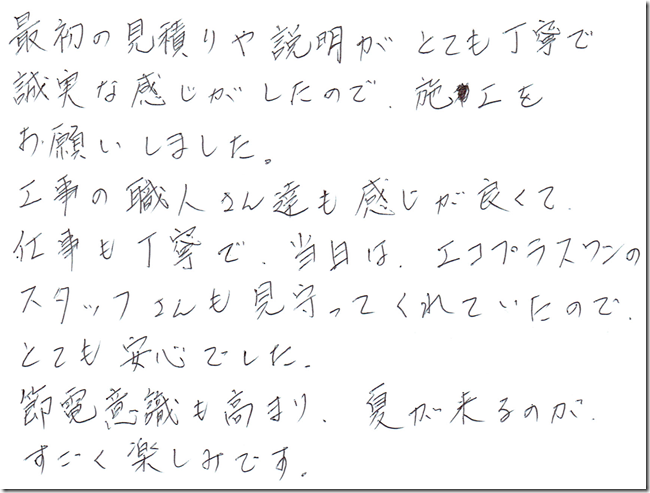 最初の見積りや説明がとても丁寧で
誠実な感じがしたので、施工を
お願いしました。
工事の職人さん達も感じが良くて、
仕事も丁寧で、当日は、エコプラスワンの
スタッフさんも見守ってくれていたので、
とても安心でした。
節電意識も高まり、夏が来るのが、
すごく楽しみです。